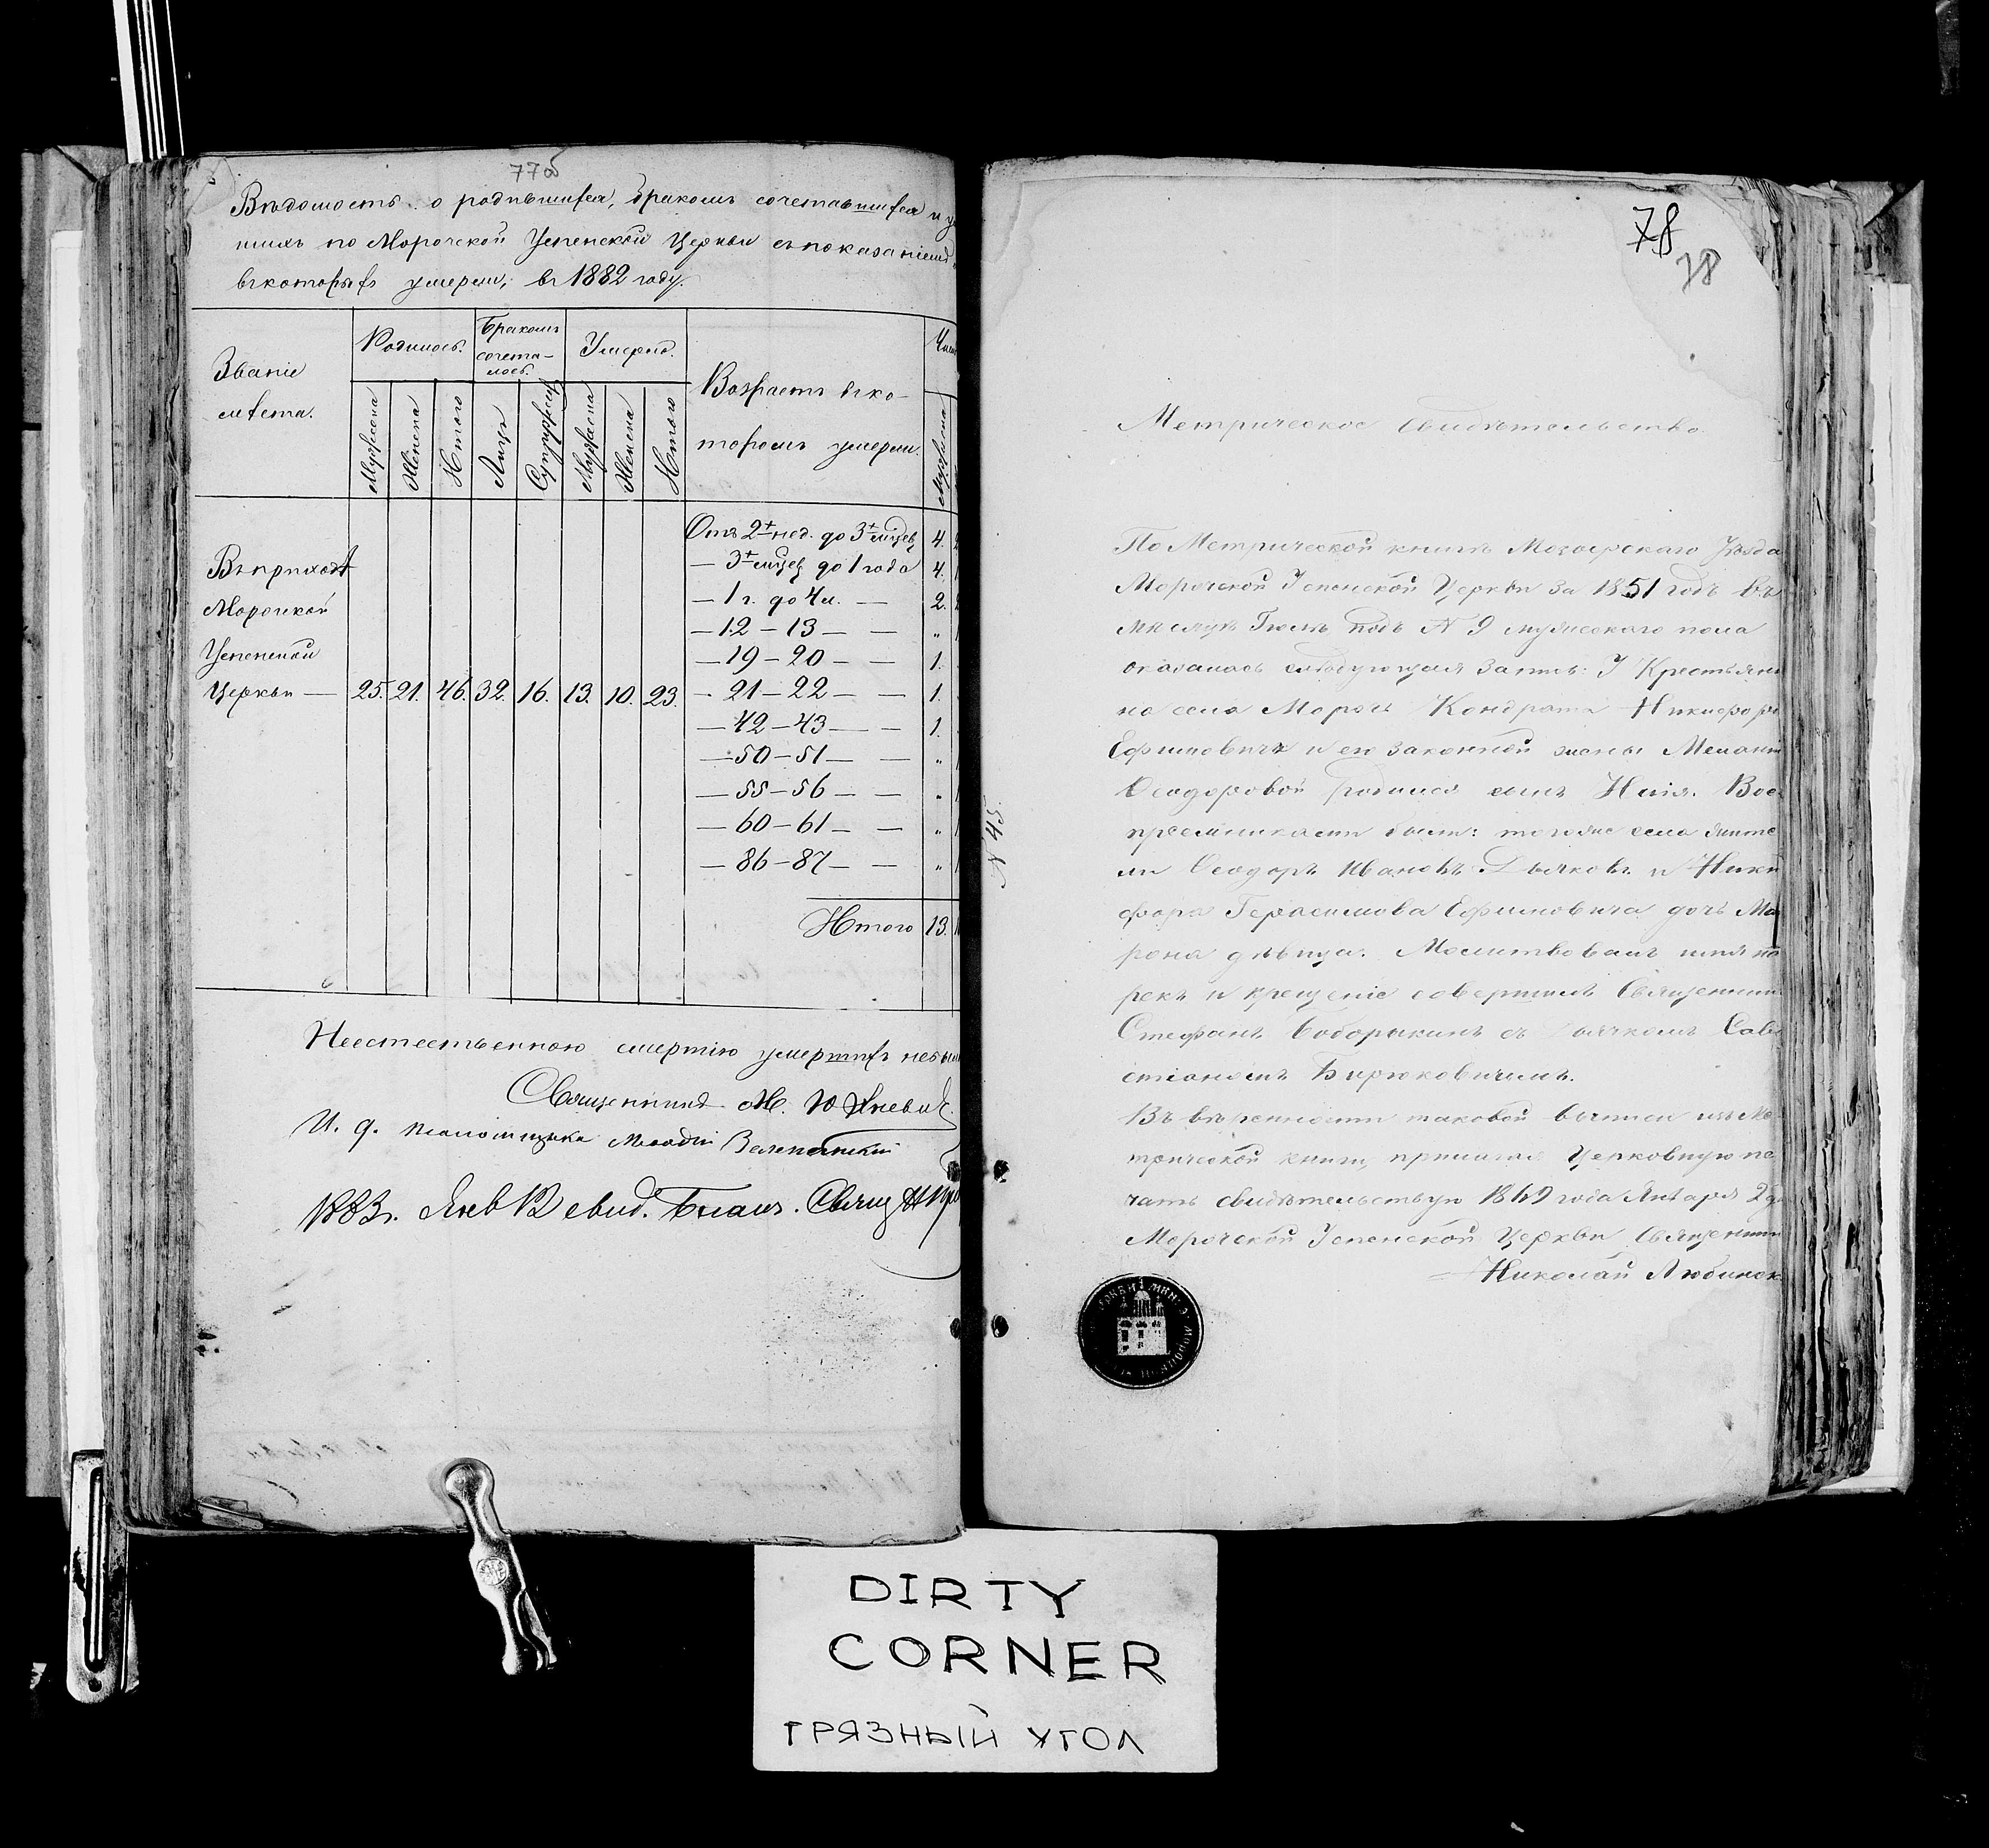 77об
Вѣдомость о родившихся, бракомъ сочетавшихся и у
шихъ по Морочской Успенской Церкви съ показаніемъ
въ которыхъ умерли, въ 1882 году.
Званіе
мѣста.
Родилось.
Бракомъ
сочета-
лось.
Умерло.
Возрастъ въ ко-
торомъ умерли.
Чис
Мужеска
Женска
Итого
Лицъ
Супружеств
Мужеска
Женска
Итого
Мужеска
Въ приходѣ
Морочской
Успенской
Церкви — 25. 21. 46. 32. 16. 13. 10. 23.
Отъ 2х нед. до 3х мѣсяц. 4.
— 3х мѣсяц. до 1 года 4.
— 1 г. до 4 л. — 2.
— 12 — 13 — — „
— 19 — 20 — — 1.
— 21 — 22 — — 1.
— 42 — 43 — — 1.
— 50 — 51 — — „
— 55 — 56 — — „
— 60 — 61 — — „
— 86 — 87 — — „
Итого 13.
Неестественною смертію умершихъ небыл
Священникъ М.
И. д. псаломщика
1883 г. Янв 12 свид. Благ. Свящ
78
78
Метрическое Свидѣтельство.
По Метрической книгѣ Мозырскаго Уѣзда
Морочской Успенской Церкви за 1851 годъ въ
мѣсяцѣ Іюлѣ подъ N 9 мужескаго пола
оказалась слѣдующая запись: У Крестьяни
на села Морочь Кондрата Никифоро
Ефимовича и его законной жены Мелані
Ѳеодоровой родился сынъ Илія. Вос
преемниками были: тогоже села жите
ли Ѳеодоръ Ивановъ Дьяковъ и Ники
фора Герасимова Ефимовича дочь Ма
рона дѣвица. Молитвовалъ имя на
рекъ и крещеніе совершилъ Священник
Стефанъ Боборыкинъ съ дьячкомъ Сава
стіаномъ Бирюковичемъ.
Въ вѣрености таковой выписи изъ Ме
трической книги, прилагая Церковную пе
чать свидѣтельствую 1869 года Января 2 д
Морочской Успенской Церкви Священник
Николай Любинск
N 45
DIRTY
CORNER
ГРЯЗНЫЙ УГОЛ